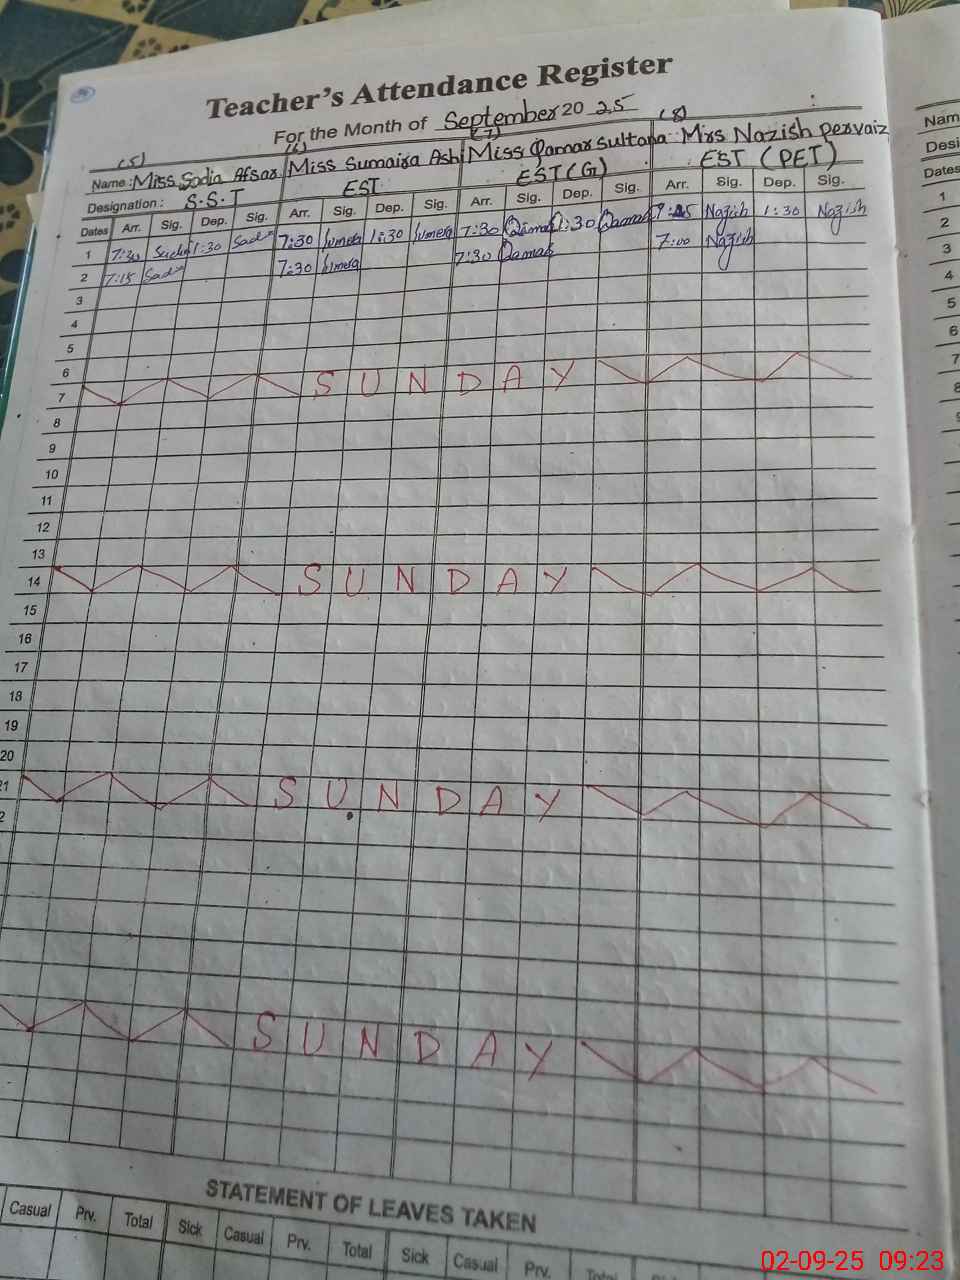 Teacher's Attendance Register
For the Month of September 20 25
(5) (6) (7) (8)
Name: Miss Sadia Afsar Miss Sumaira Ash Miss Qamar Sultana Mrs Nazish Pervaiz
Designation: S.S.T EST EST (G) EST (PET)
Dates Arr. Sig. Dep. Sig. Arr. Sig. Dep. Sig. Arr. Sig. Dep. Sig. Arr. Sig. Dep. Sig.
1 7:30 Sadia 1:30 Sadia 7:30 Sumera 1:30 Sumera 7:30 Qamar 1:30 Qamar Nazish 1:30 Nazish
2 7:15 Sadia 7:30 Sumera 7:30 Qamar 7:00 Nazish
3
4
5
6
7 SUNDAY
8
9
10
11
12
13
14 SUNDAY
15
16
17
18
19
20
21 SUNDAY
2
SUNDAY
STATEMENT OF LEAVES TAKEN
Casual Prv. Total Sick Casual Prv. Total Sick Casual Prv. Total
Nam
Desi
Dates
1
2
3
4
5
6
7
8
02-09-25 09:23